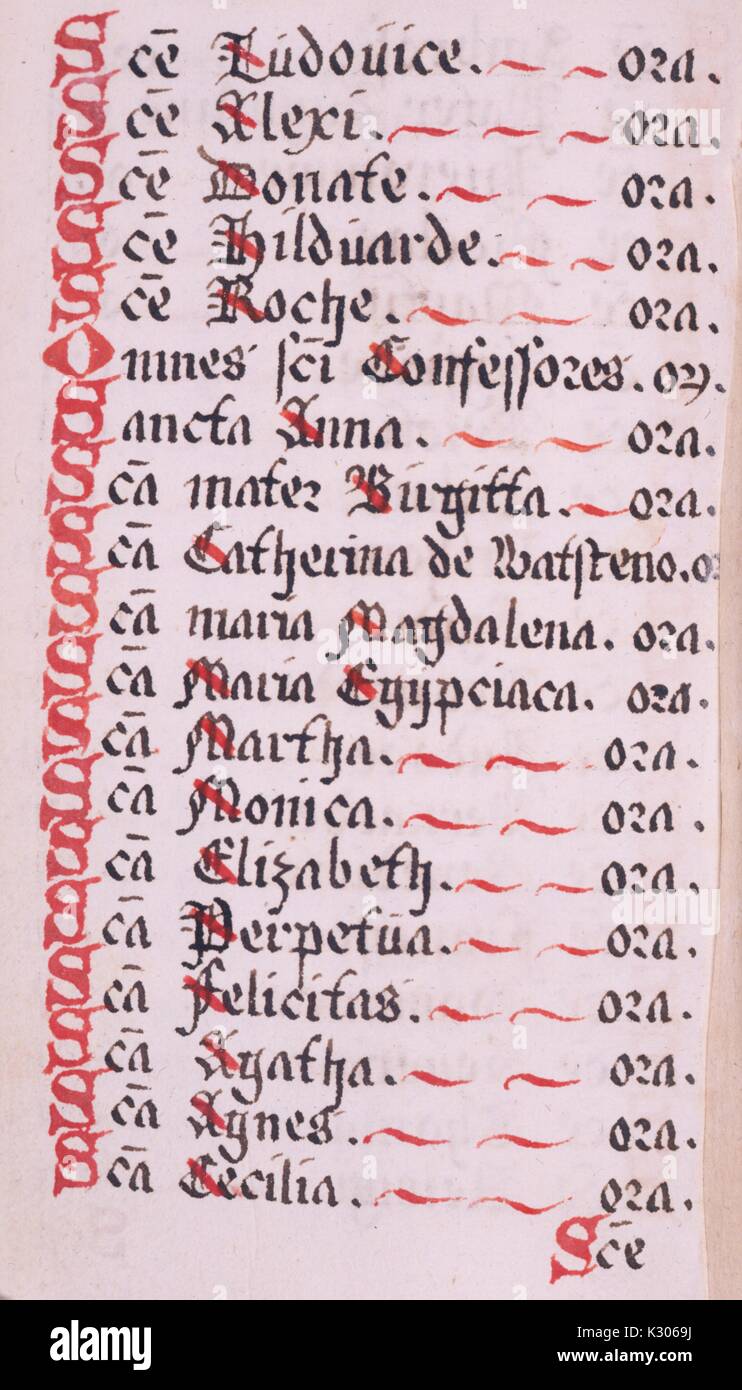 Scē Ludovice. ora.
Scē Alexi. ora.
Scē Donate. ora.
Scē Hilduarde. ora.
Scē Roche. ora.
Omnes sc̄i Confessores. or.
Sancta Anna. ora.
Sc̄a mater Birgitta. ora.
Sc̄a Catherina de Watsteno. o
Sc̄a maria Magdalena. ora.
Sc̄a Maria Egypciaca. ora.
Sc̄a Martha. ora.
Sc̄a Monica. ora.
Sc̄a Elizabeth. ora.
Sc̄a Perpetua. ora.
Sc̄a Felicitas. ora.
Sc̄a Agatha. ora.
Sc̄a Agnes. ora.
Sc̄a Cecilia. ora.
Scē
alamy stock photo
alamy
Image ID: K3069J
www.alamy.com